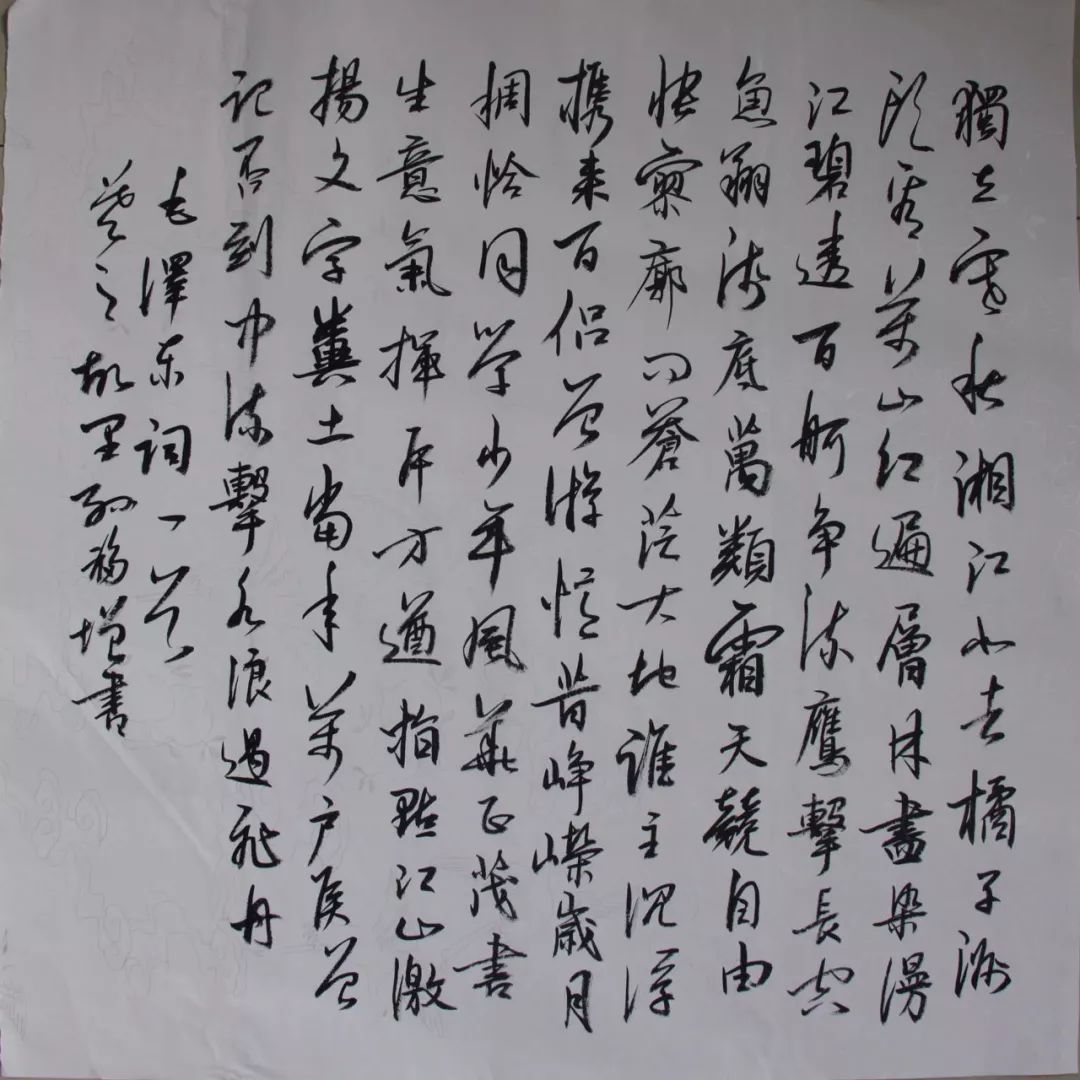 獨立寒秋湘江北去橘子洲
頭看萬山紅遍層林盡染漫
江碧透百舸争流鷹擊長空
魚翔淺底萬類霜天競自由
悵寥廓問蒼茫大地誰主沉浮
携来百侣曾游憶昔崢嶸歲月
稠恰同學少年風華正茂書
生意氣揮斥方遒指點江山激
揚文字糞土當年萬户侯曾
記否到中流擊水浪遏飛舟
毛澤东詞一首
之故里孙福增書